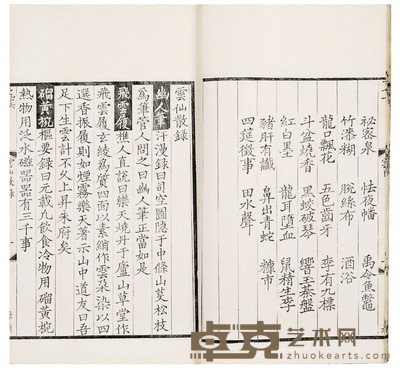 祕密泉 怯夜幡 禹令魚鼈
竹漆糊 脘絲布 酒浴
龍口飄花 五色齒牙 李有九標
斗盆燒香 黑蛟破琴 響玉棊盤
紅白墨 龍耳墮血 鼠精生李
豬肝有讖 鼻出青蛇 糠市
四筵徵事 田水聲
雲仙散錄
幽人筆 汗漫錄曰司空圖隱于中條山芟松枝
爲筆管人問之曰幽人筆正當如是
飛雲履 樵人直說曰樂天燒丹于廬山草堂作
飛雲履玄綾爲質四面以素綃作雲朵染以四
選香振履則如煙霧樂天著示山中道友曰吾
足下生雲計不久上昇朱府矣
硫黃椀 樞要錄曰元載凡飲食冷物用硫黃椀
熱物用泛水磁器器有三千事
卓克艺术网
zhuokearts.com